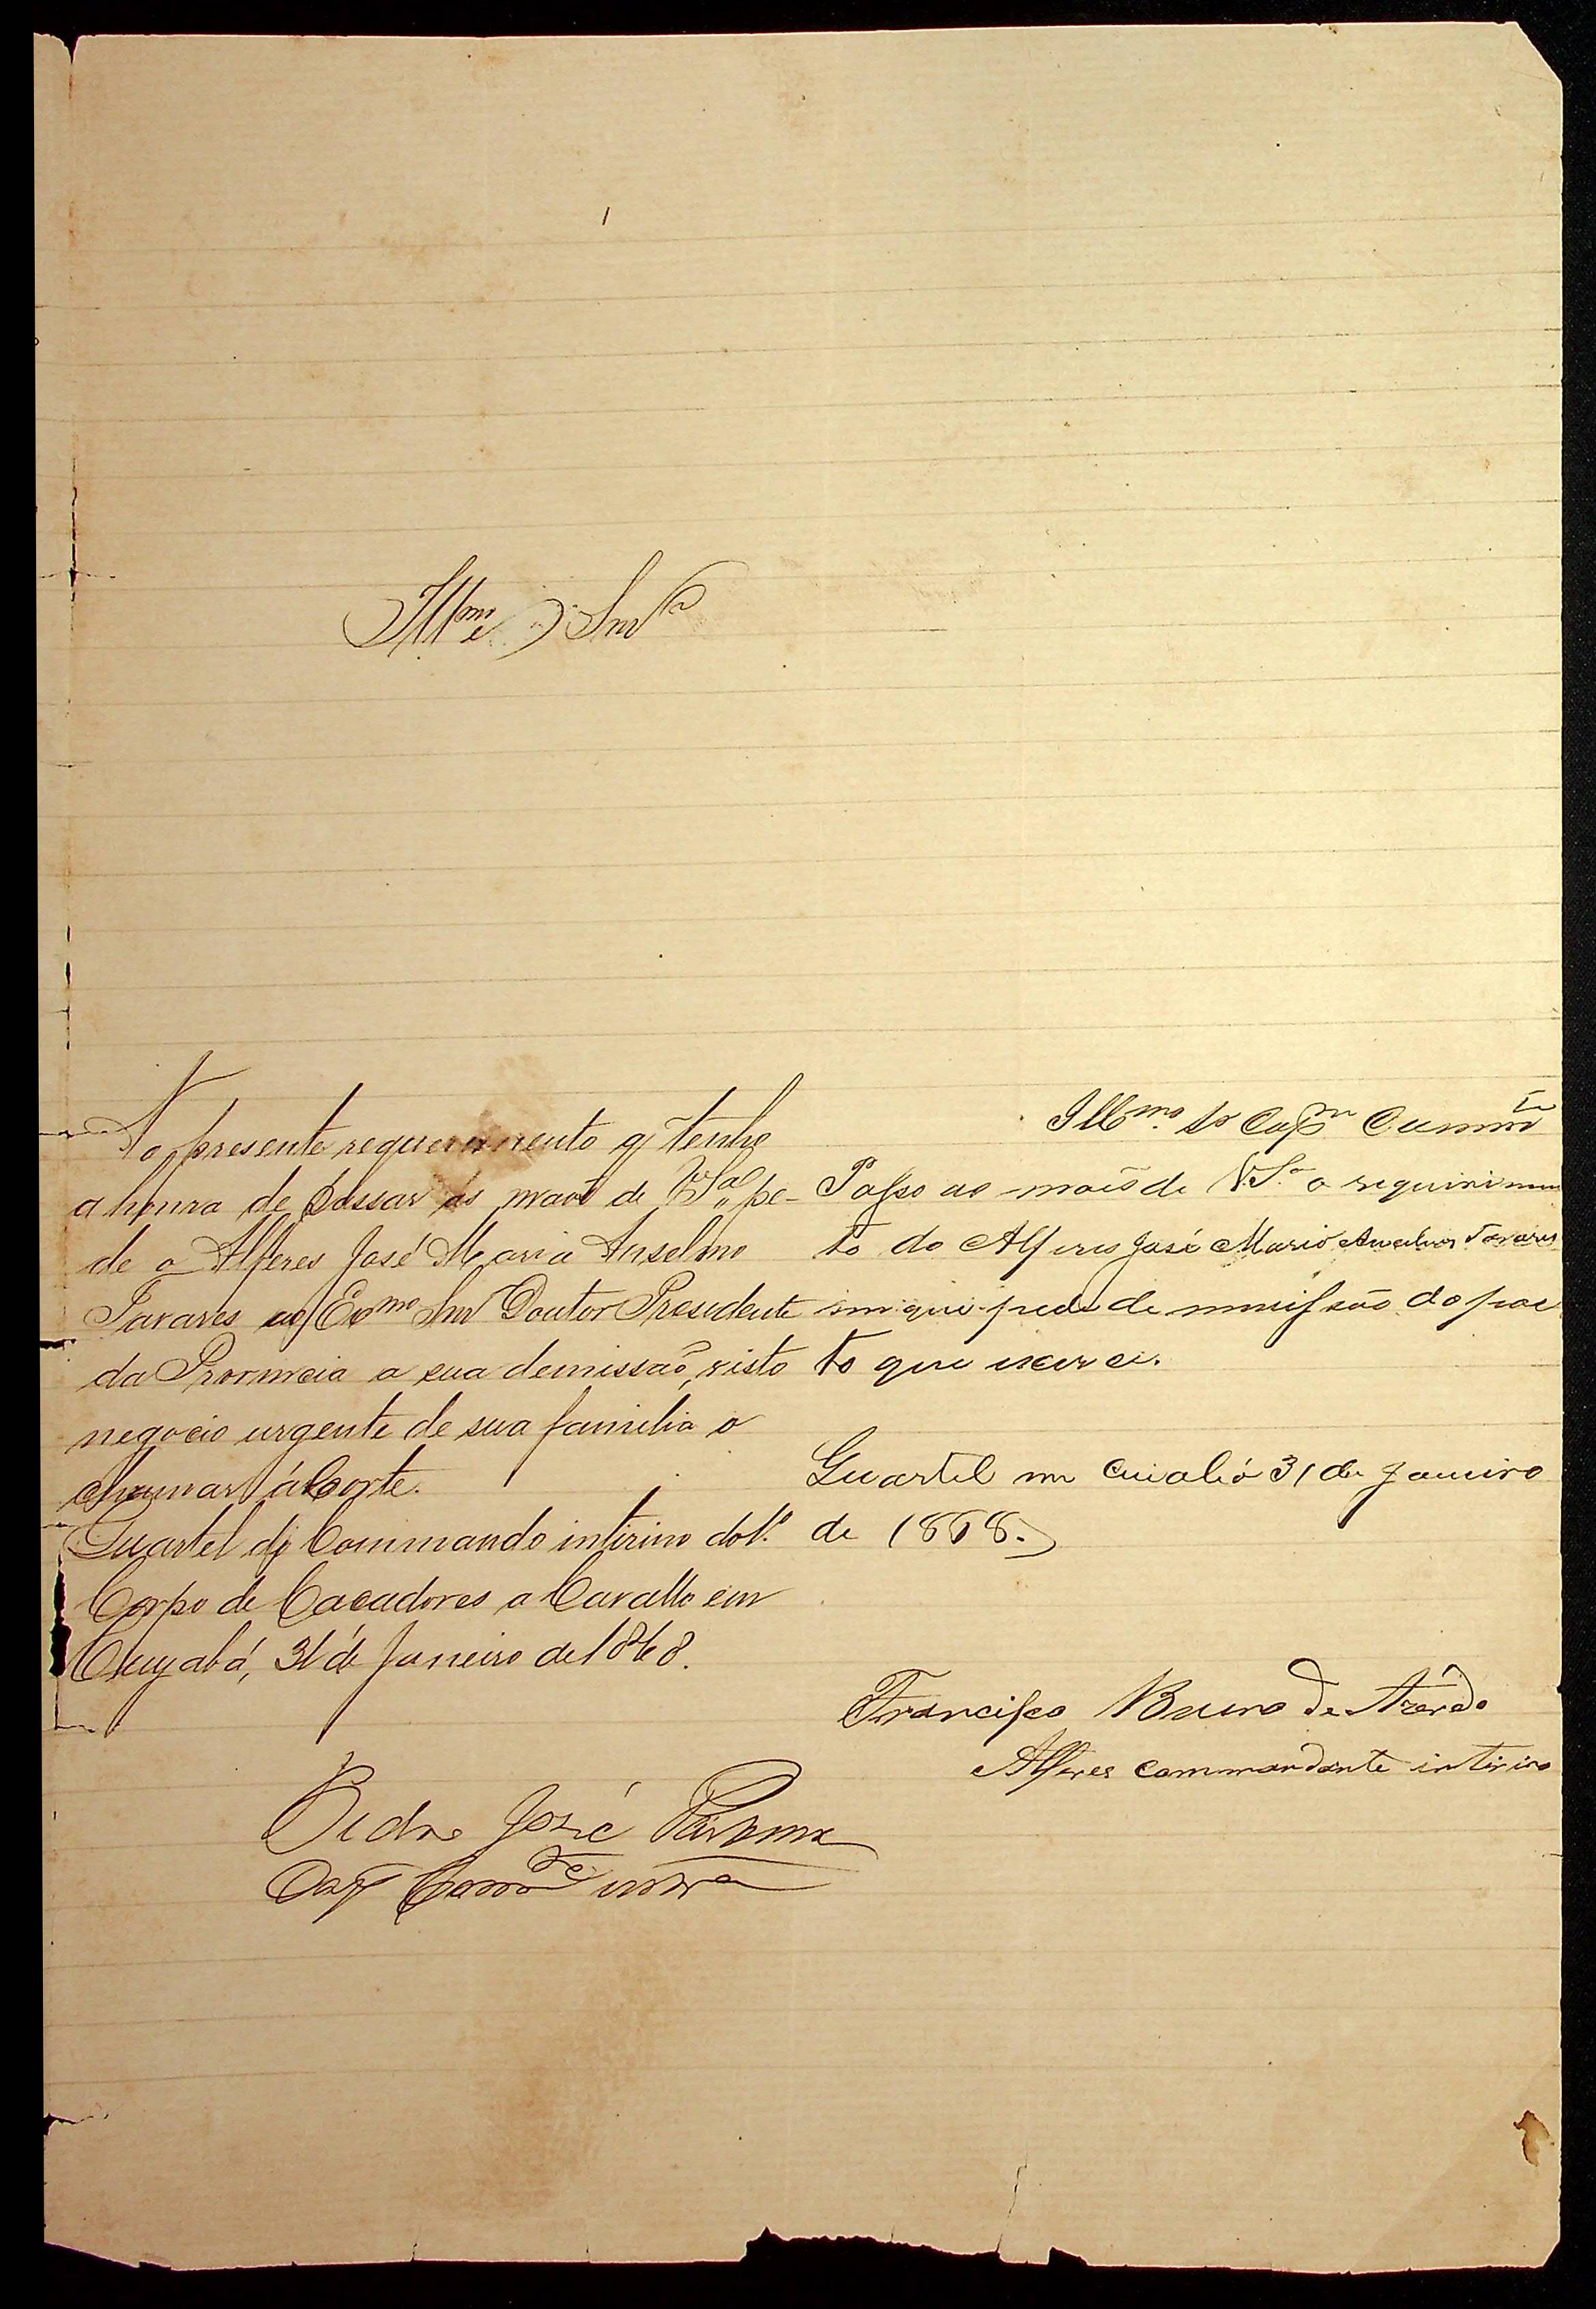 Illmo Snr
No presente requerimento q̃ tenho
a honra de passar ás maõs de V. Sa. pe-
de o Alferes José Maria Anselmo
Tavares ao Exmo Snr Doutor Presidente
da Provincia a sua demissaõ, visto
negocio urgente de sua familia o
chamar á Corte.
Quartel do Commando interino do 1.º
Corpo de Cacadores a Cavallo em
Cuyabá, 31 de Janeiro de 1868.
Pedro José
Cap Comte
Illmo. Sr Capm Comm te
Passo as maõs de V S.a o requirimen
to do Alferes José Maria Anselmo Tavares
im que pede demmissão do pos
to que exerce.
Quartel em Cuiabá 31 de Janeiro
de 1868.
Francisco Bueno de Azevedo
Alferes commandante interino